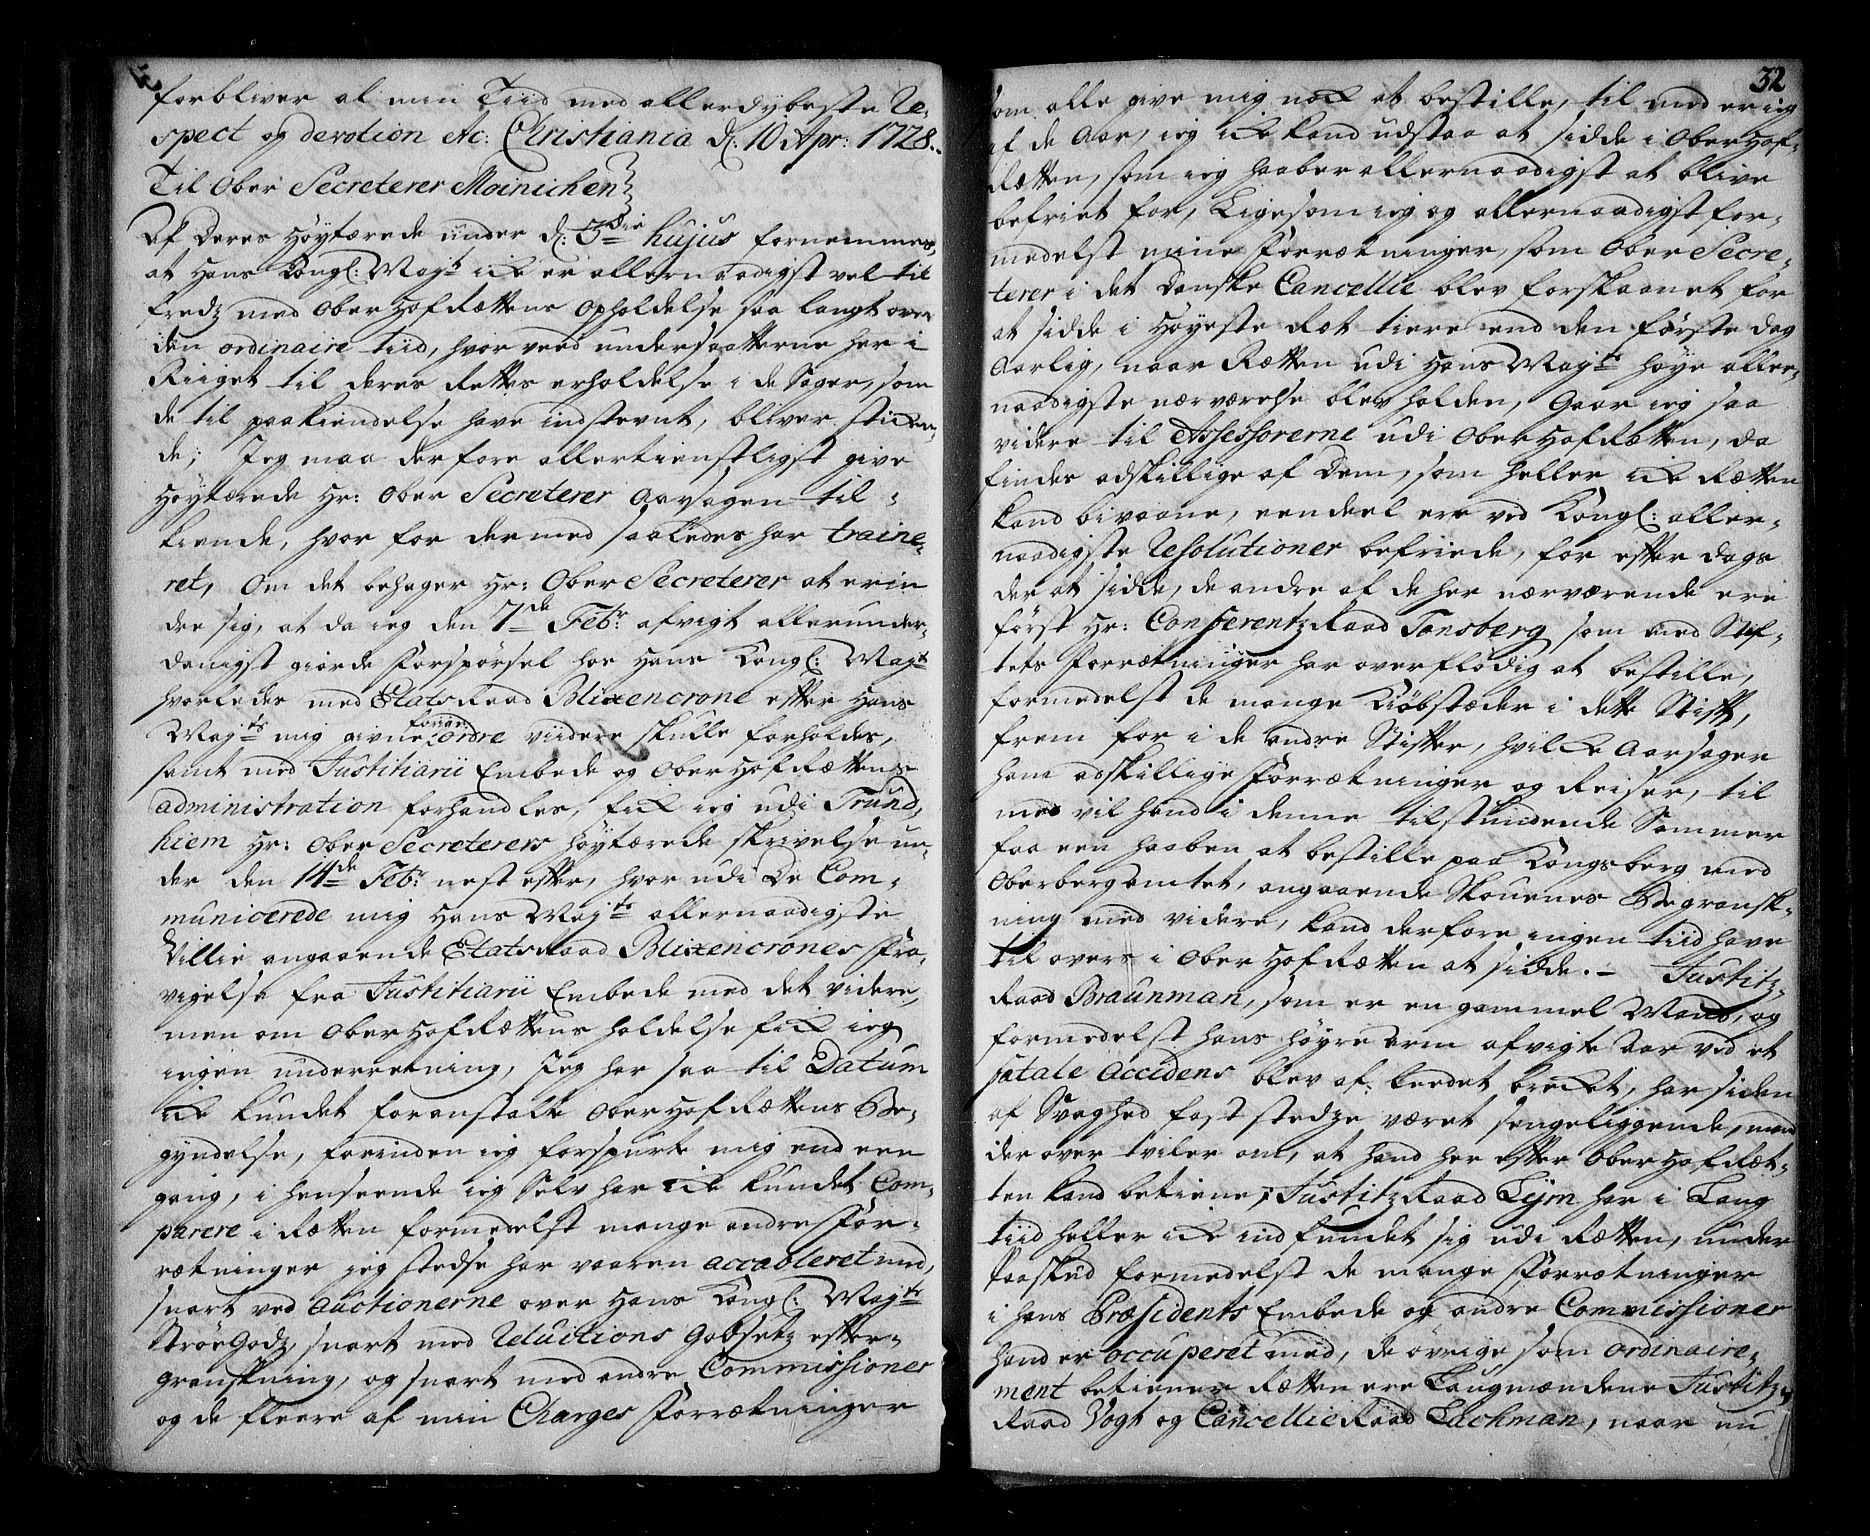 forbliver al min Tiid med allerdybeste Re-
spect og devotion etc: Christiania d: 10 Apr: 1728.
Til Ober Secreterer Möinichen
Af Deres Høyærede under d: 3die hujus fornemmes,
at Hans Kongl: Mayt icke er allernaadigst vel til
fredz med OberHofRættens Opholdelse saa langt over
den ordinaire tiid, hvor ved undersaatterne her i
Riiget til deres Rettes erholdelse i de Sager, som
de til paakiendelse have indstevnt, bliver
de; Jeg maa derfore allertienstligst give
Høyærede Hr: Ober Secreterer Aarsagen til-
kiende, hvor for dermed saaledes har traine-
ret, Om det behager Hr: Ober Secreterer at erin
dre sig, at da ieg den 7de Febr: afvigt allerunder-
danigst giorde Forspørsel hos Hans Kongl: Mayt
hvorledes med EtatsRaad Blixencrone efter Hans
Mayts mig givne forige ordre viidere skulle forholdes,
samt med Justitiarii Embede og OberHofRættens
administration forhandles, fick ieg udi Trund-
hiem Hr: Ober Secreterers høyærede skrivelse un-
der den 14de Febr nest efter, hvor udi De Com-
municerede mig Hans Mayts allernaadigste
Villie angaaende EtatsRaad Blixencrones Fra-
vigelse fra Justitiarii Embede med det videre,
men om OberHofRættens holdelse fick ieg
ingen underretning, Jeg har saa til Datum
icke kundet foranstalte OberHofRættens Be-
gyndelse, forinden ieg forspurte mig end een
gang, i henseende ieg Selv har icke kundet Com-
parere i Rætten formedelst mange andre For-
rætninger jeg stedse har vaaren accableret med,
snart ved Auctionerne over Hans Kongl: Mayts
StrøeGodz, snart med Reluitions efter-
granskning, og snart med andre Commissioner
og de fleere af min Charges Forrætninger
32
som alle give mig nock at bestille, til med er ieg
af de Aar, ieg icke kand udstaa at sidde i OberHof-
Rætten, som ieg haaber allernaadigst at blive
befriet for, Ligesom ieg og allernaadigst for-
medelst mine Forrætninger, som Ober Secre-
terer i det Danske Cancellie blev forskaanet for
at sidde i Høyeste Ræt tiere end den første dag
Aarlig, naar Rætten udi Hans Mayts høye aller-
naadigste nærværelse blev holden, Gaar ieg saa
videre til Assessorerne udi OberHofRætten, da
findes adskillige af Dem, som heller icke Rætten
kand bivaane, eendeel ere ved Kongl: aller-
naadigste Resolutioner befriede, for efter dags
der at sidde, de andre af de her nærværende ere
først Hr: ConferentzRaad Tonsberg som med Stif-
tets Forrætninger har overflødig at bestille,
formedelst de mange Kiøbstæder i dette Stift,
frem for i de andre Stifter, hvilcke Aarsager
ham adskillige Forrætninger og Reiser, til
med vil hand i denne tilstundende Sommer
faa een haaben at bestille paa Kongsberg med
Oberbergamtet, angaaende Skouenes Begransk-
ning med videre, kand derfore ingen tiid have
til overs i OberHofRætten at sidde. - Justitz-
Raad Braunman, som er en gammel Mand, og
formedelst hans høyre arm afvigte Aar ved et
fatale Accidens blev af brecket, har siden
af Svaghed fast stedze været sengeliggende, mand
der over tviler om, at hand her efter OberHofRæt-
ten kand betiene; JustitzRaad Lejm har i Lang
tiid heller icke ind fundet sig udi Rætten, under
Paaskud formedelst de mange Forrætninger
i hans Præsidents Embede og andre Commissioner
hand er occuperet med, de øvrige som ordinaire-
ment betiener Rætten ere Laugmændene Justitz-
Raad Vogt og CancellieRaad Lachman, naar nu